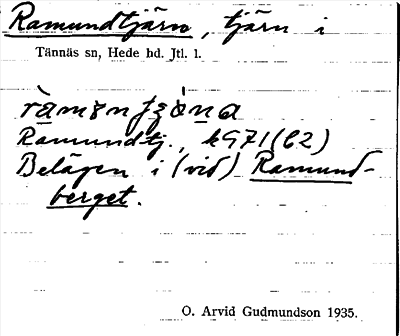 Ramundtjärn, tjärn i
Tännäs sn, Hede hd. Jtl. l.
Ramundtj., k971 (62)
Belägen i (vid) Ramund-
berget.
O. Arvid Gudmundson 1935.